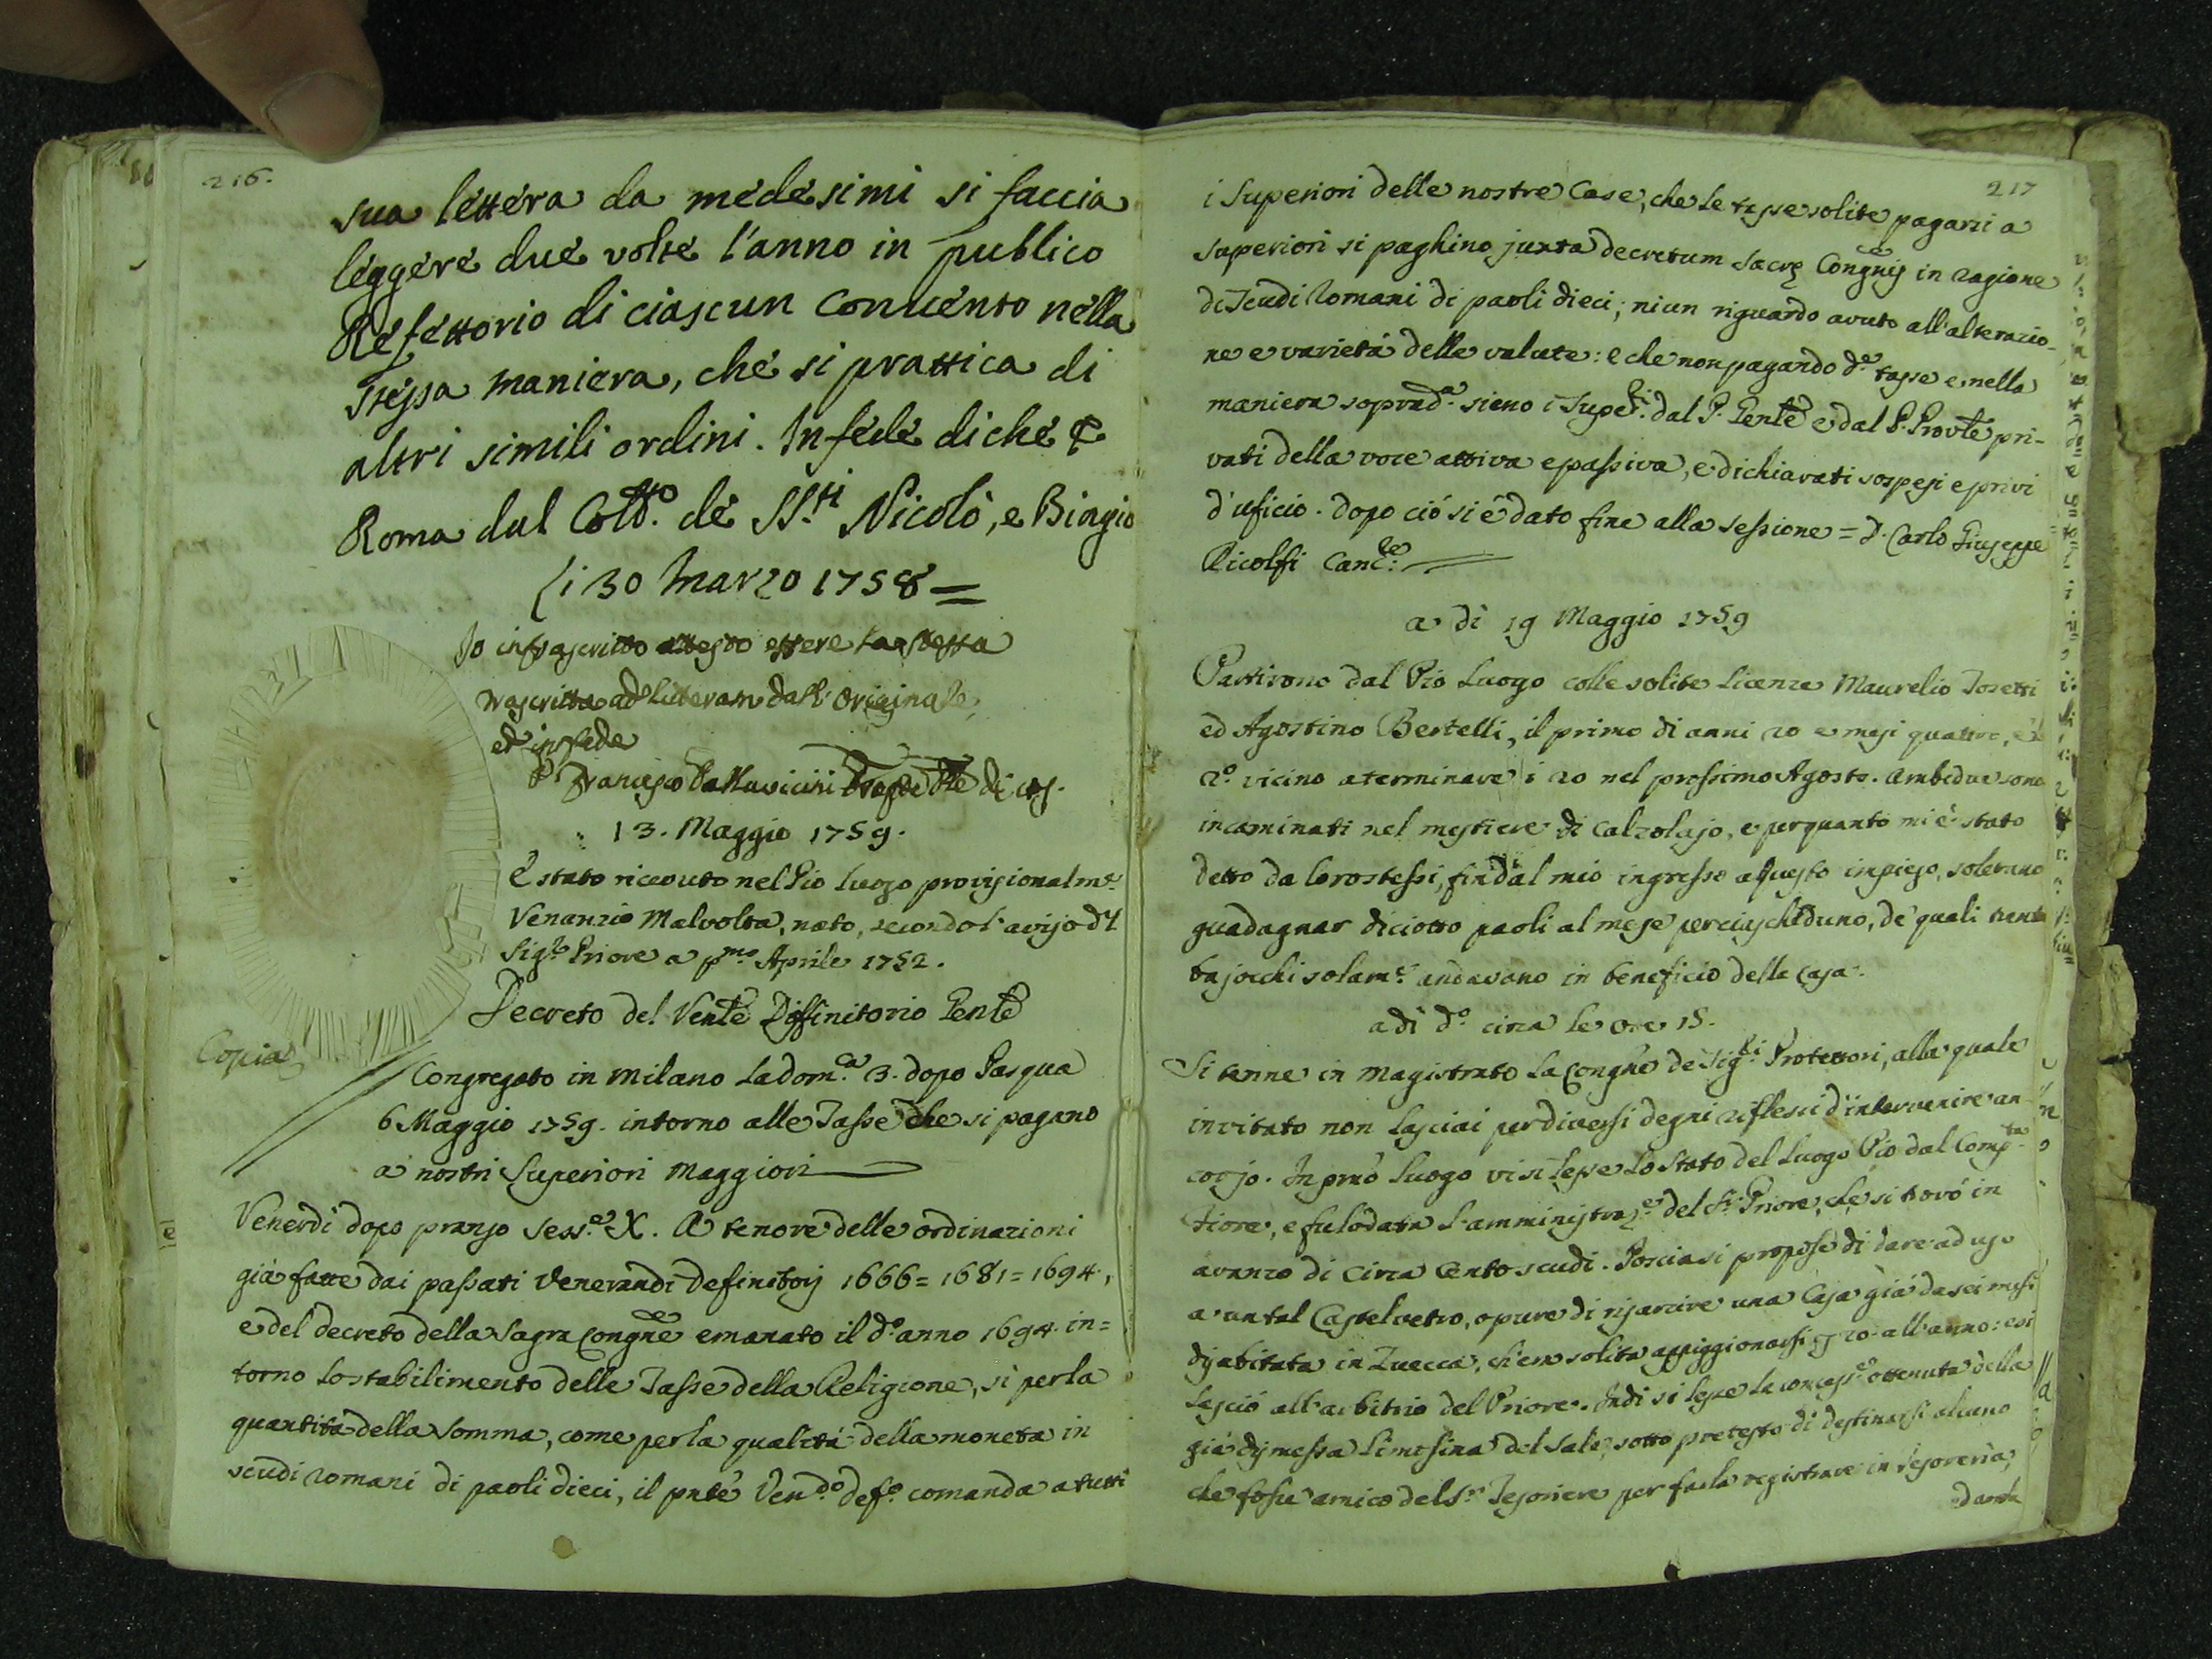 216.
sua lettera da medesimi si faccia
leggere due volte l'anno in publico
Refettorio di ciascun Convento nella
stessa maniera, che si prattica di
altri simili ordini. In fede di che &
Roma dal Coll.o de SS.ti Nicolò, e Biagio
li 30 Marzo 1758 =
Io infrascritto attesto essere la stessa
trascritta ad literam dall' Originale,
ed in fede
D. Francesco Pallavicini
13. Maggio 1759.
È stato ricevuto nel Pio Luogo provisionalm.e
Venanzio Malvolta, nato, secondo l'aviso del
Sig.r Priore a pmo Aprile 1752.
Decreto del Vente Diffinitorio Genle
Copia
Congregato in Milano la dom.ca 3. dopo Pasqua
6 Maggio 1759. intorno alle Tasse che si pagano
a' nostri Superiori Maggiori
Venerdì dopo pranso Sess.e X. A tenore delle ordinazioni
già fatte dai passati Venerandi Definitorij 1666 = 1681 = 1694,
e del decreto della Sagra Congne emanato il d.o anno 1694. in=
torno lo stabilimento delle Tasse della Religione, sì per la
quantità della Somma, come per la qualità della moneta in
scudi romani di paoli dieci, il pnte Ven.do def.o comanda a tutti
217
i Superiori delle nostre Case, che le tasse solite pagarsi a
Superiori si paghino juxta decretum Sacrę Congnis in ragione
di Scudi Romani di paoli dieci; niun riguardo avuto all'alterazio-
ne e varietà delle valute: e che non pagando d.e tasse e nella
maniera soprad.a sieno i Super.ri dal P. Genle e dal P. Provle pri-
vati della voce attiva e passiva, e dichiarati sospesi e privi
d'uficio. Dopo ciò si è dato fine alla sessione = D. Carlo Giuseppe
Ricolfi Canc.re
a di 19 Maggio 1759
Partirono dal Pio Luogo colle solite licenze Maurelio Josetti
ed Agostino Bertelli, il primo di anni 20 e mesi quattro, e il
2.o vicino a terminare i 20 nel prossimo Agosto. Ambidue sono
incaminati nel mestiere di Calzolajo, e per quanto mi è stato
detto da loro stessi, fin dal mio ingresso a questo impiego, solevano
guadagnar diciotto paoli al mese per ciascheduno, de' quali trenta
bajocchi solam.e andavano in beneficio della Casa.
a di d.o circa le ore 15.
Si tenne in Magistrato la Congne de Sig.ri Protettori, alla quale
invitato non lasciai per diversi degni riflessi d'intervenire an-
cor jo. In pmo luogo vi si lesse lo Stato del Luogo Pio dal Comp.ta
Fiore, e fu lodata l'amministraz.e del S.r Priore, che si trovò in
avanzo di circa cento scudi. Poscia si propose di dare ad uso
a un tal Castelvetro, opure di risarcire una Casa già da sei mesi
disabitata in Zuecca, ch'era solita appiggionarsi 20 all'anno: e si
lasciò all'arbitrio del Priore. Indi si lesse la concess.e ottenuta della
già dismessa limosina del Sale, sotto pretesto di destinarsi alcuno
che fosse amico del S.r Tesoriere per farla registrare in Tesoreria,